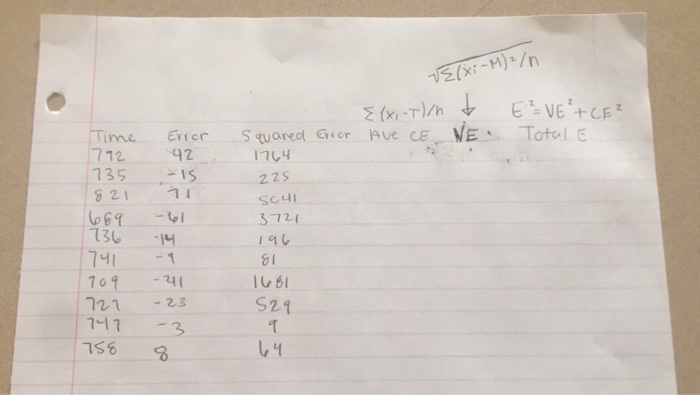 √Σ(xi-M)²/n
Σ(xi-T)/n ↓ E²=VE²+CE²
Time Error Squared Error Ave CE VE. Total E
792 42 1764
735 -15 225
821 71 5041
689 -61 3721
736 -14 196
741 -9 81
709 -41 1681
727 -23 529
747 -3 9
758 8 64